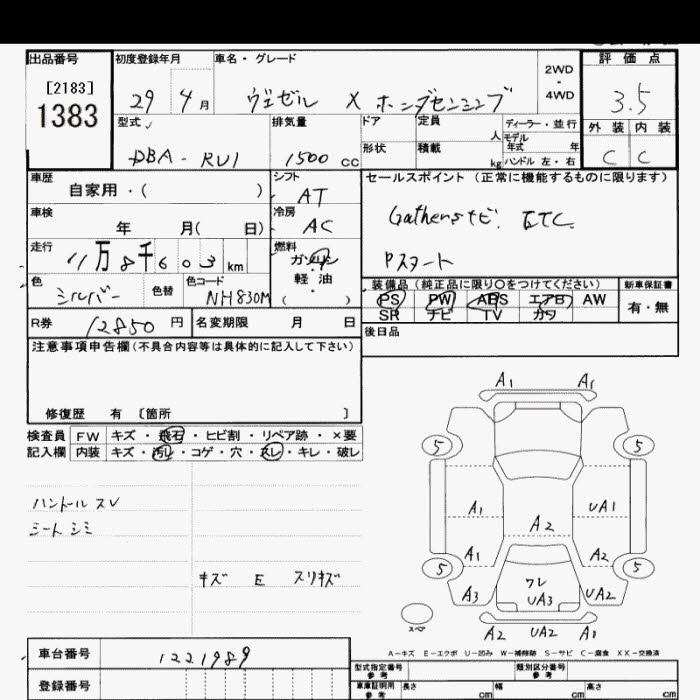 出品番号 初度登録年月 車名・グレード 評価点
[2183]
1383
29 4月 ヴェゼル X ホンダセンシング
2WD
4WD
3.5
型式 排気量 ドア 定員 人 ディーラー・並行
モデル年式 年
外装 内装
DBA-RU1 1500cc 形状 積載 kg ハンドル 左・右
C C
車歴 自家用・( )
シフト AT
セールスポイント(正常に機能するものに限ります)
車検 年 月( 日)
冷房 AC
Gathersナビ ETC
走行 11万8千603km
燃料 ガソリン・軽油・( )
Pスタート
色 シルバー 色替 色コード NH830M
装備品(純正品に限り○をつけてください) 新車保証書
PS PW ABS エアB AW
SR ナビ TV カワ
有・無
R券 12850円 名変期限 月 日
後日品
注意事項申告欄(不具合内容等は具体的に記入して下さい)
修復歴 有〔箇所 〕
検査員記入欄
FW キズ・飛石・ヒビ割・リペア跡・×要
内装 キズ・汚レ・コゲ・穴・スレ・キレ・破レ
ハンドル スレ
シート シミ
キズ E スリキズ
A1 A1
5 5
A1 UA1
A2
A1 A2
5 5
A3 ワレ UA3 UA2
スペア
A2 UA2 A1
A-キズ E-エクボ U-凹み W-補修跡 S-サビ C-腐食 XX-交換済
車台番号 1221989
登録番号
型式指定番号 参考 類別区分番号 参考
車庫証明用 参考 長さ cm 幅 cm 高さ cm